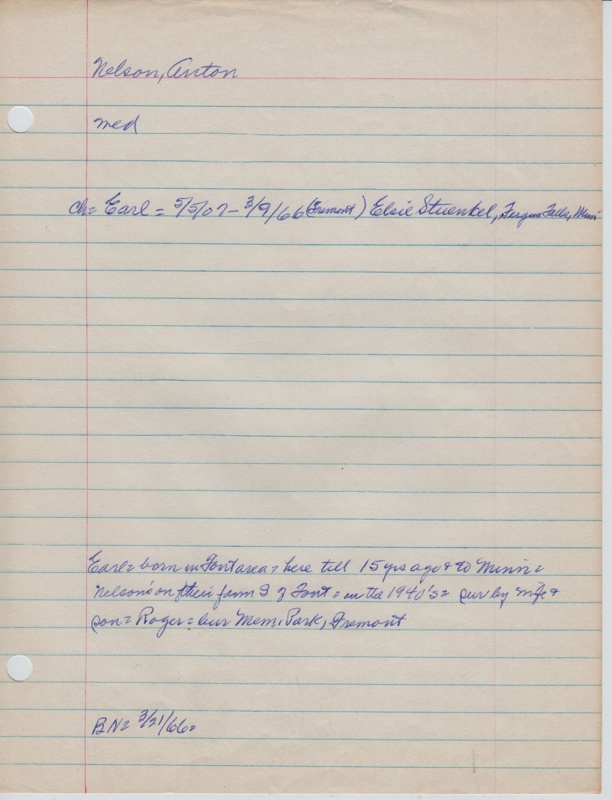 Nelson, Anton
med
Ch= Earl = 5/5/07 - 3/9/66 (Fremont) Elsie Stuenkel, Fergus Falls, Minn
Earl = born in Font area = here till 15 yrs ago & to Minn =
Nelson's on their farm S of Font = in the 1940's = sur by wife &
son = Roger = bur Mem. Park, Fremont
BN= 3/21/66=